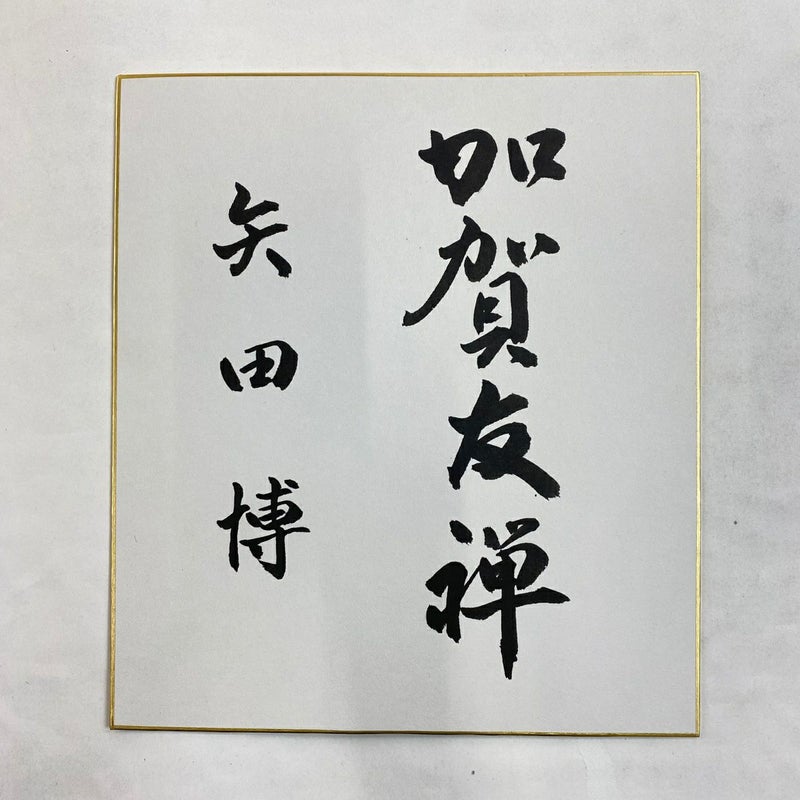 加賀友禅
矢田博